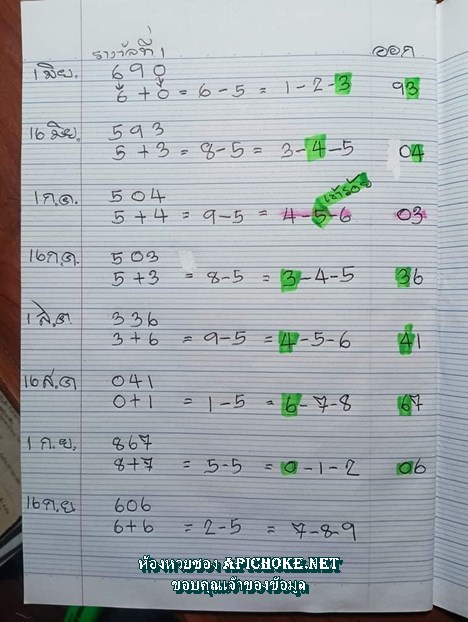 รางวัลที่ 1 ออก
1 มิย. 690
6 + 0 = 6 - 5 = 1 - 2 - 3 93
16 มิย. 593
5 + 3 = 8 - 5 = 3 - 4 - 5 04
1 ก.ค. 504
5 + 4 = 9 - 5 = 4 - 5 - 6 03
16 ก.ค. 503
5 + 3 = 8 - 5 = 3 - 4 - 5 36
1 ส.ค 336
3 + 6 = 9 - 5 = 4 - 5 - 6 41
16 ส.ค 041
0 + 1 = 1 - 5 = 6 - 7 - 8 67
1 ก.ย. 867
8 + 7 = 5 - 5 = 0 - 1 - 2 06
16 ก.ย 606
6 + 6 = 2 - 5 = 7 - 8 - 9
ห้องหวยซอง APICHOKE.NET
ขอบคุณเจ้าของข้อมูล